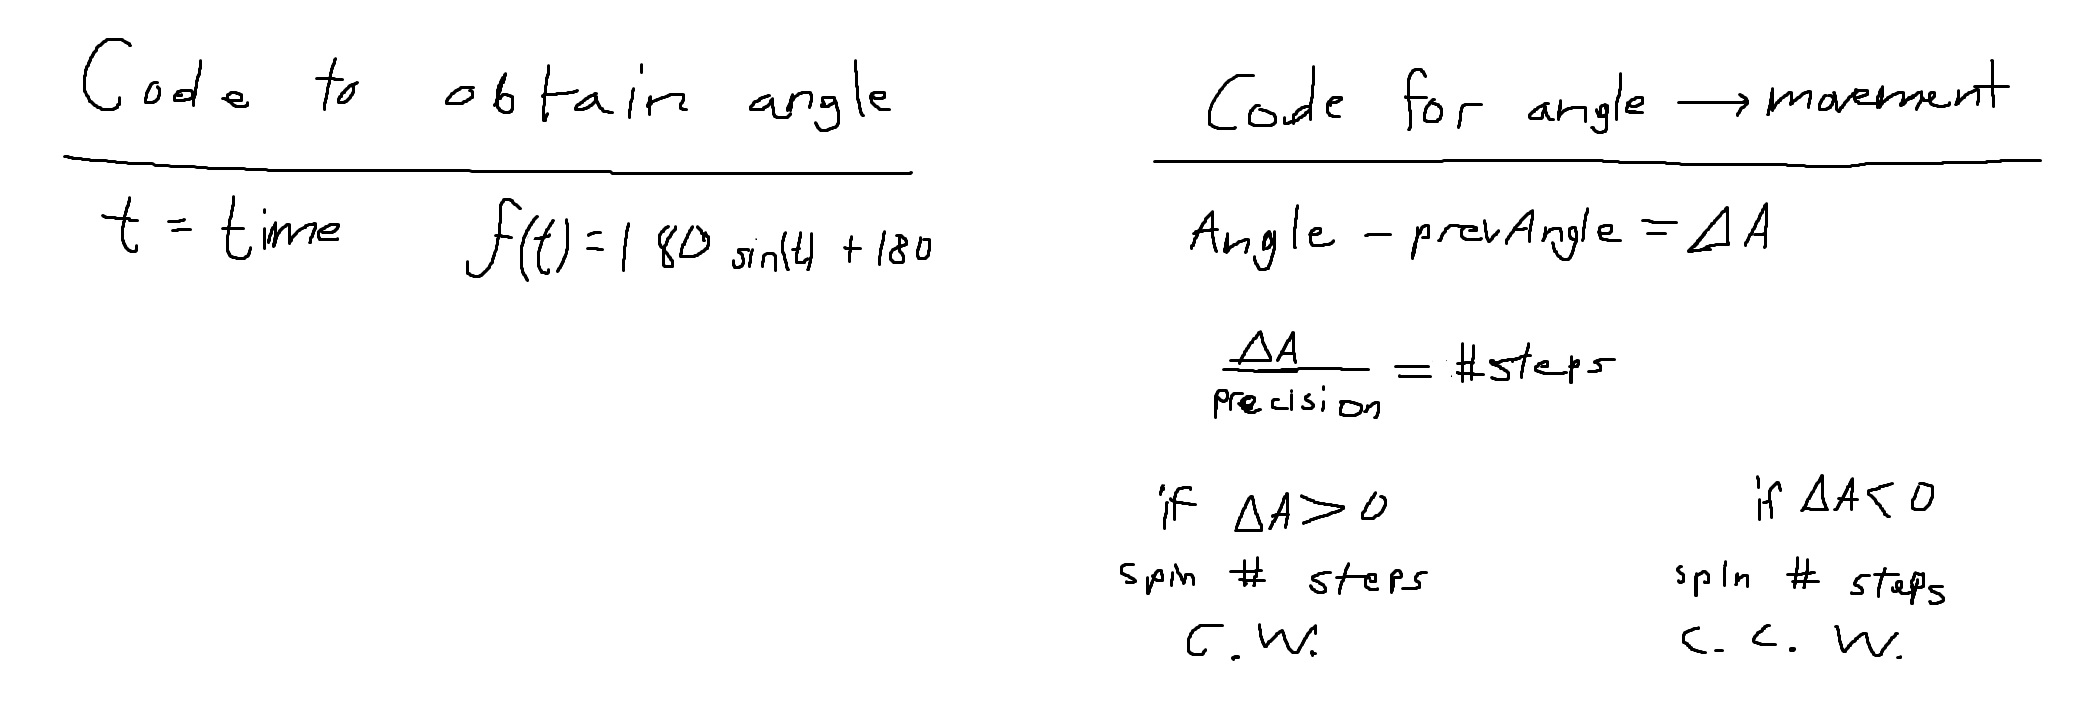 Code to obtain angle
t = time f(t) = 180 sin(t) + 180
Code for angle → movement
Angle - prevAngle = ΔA
ΔA
precision
= #steps
if ΔA > 0
spin # steps
C.W.
if ΔA < 0
spin # steps
C.C.W.